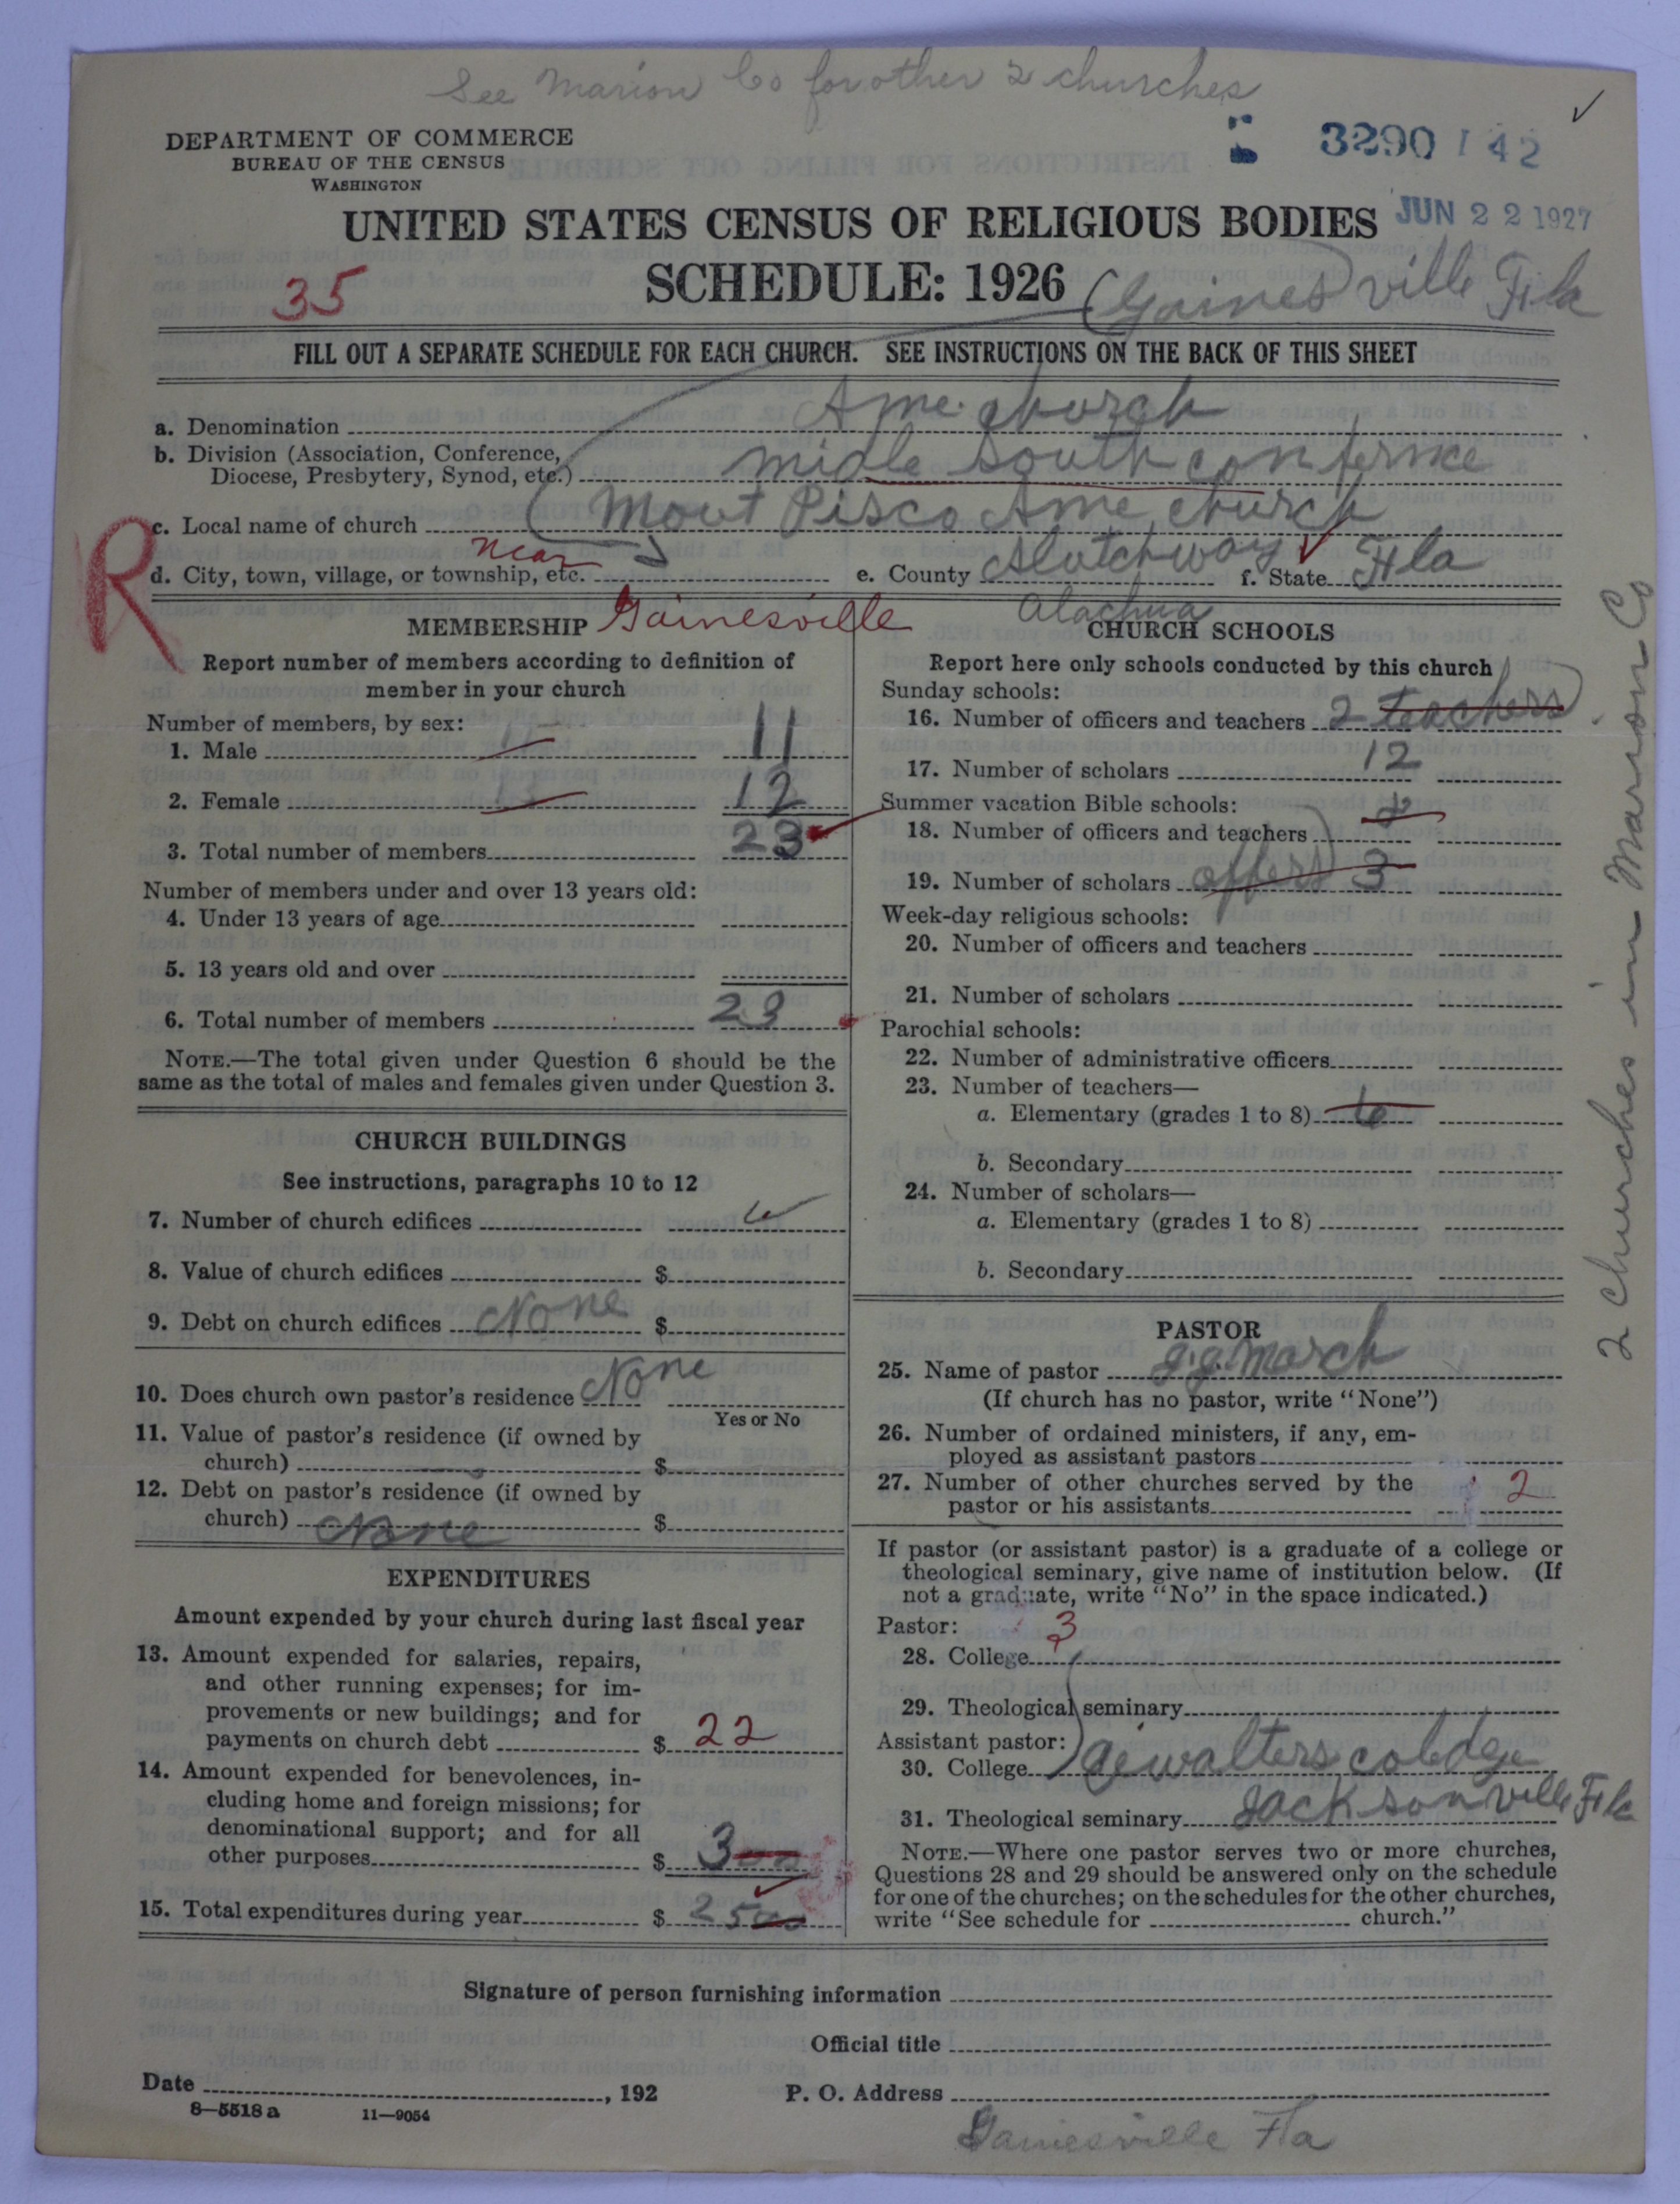 See Marion Co for other 2 churches
DEPARTMENT OF COMMERCE
BUREAU OF THE CENSUS
WASHINGTON
3290 142
UNITED STATES CENSUS OF RELIGIOUS BODIES
JUN 22 1927
SCHEDULE: 1926
(Gainesville Fla
35
FILL OUT A SEPARATE SCHEDULE FOR EACH CHURCH. SEE INSTRUCTIONS ON THE BACK OF THIS SHEET
a. Denomination Ame church
b. Division (Association, Conference,
Diocese, Presbytery, Synod, etc.) midle South confernce
c. Local name of church Mout Pisco Ame church
R
d. City, town, village, or township, etc. near Gainesville
e. County Alutchway Alachua
f. State Fla
MEMBERSHIP
Report number of members according to definition of
member in your church
Number of members, by sex:
1. Male 11 11
2. Female 13 12
3. Total number of members 23
Number of members under and over 13 years old:
4. Under 13 years of age
5. 13 years old and over
6. Total number of members 23
NOTE.—The total given under Question 6 should be the
same as the total of males and females given under Question 3.
CHURCH BUILDINGS
See instructions, paragraphs 10 to 12
7. Number of church edifices
8. Value of church edifices $
9. Debt on church edifices None $
10. Does church own pastor's residence None
Yes or No
11. Value of pastor's residence (if owned by
church) $
12. Debt on pastor's residence (if owned by
church) None $
EXPENDITURES
Amount expended by your church during last fiscal year
13. Amount expended for salaries, repairs,
and other running expenses; for im-
provements or new buildings; and for
payments on church debt $ 22
14. Amount expended for benevolences, in-
cluding home and foreign missions; for
denominational support; and for all
other purposes $ 300
15. Total expenditures during year $ 2500
CHURCH SCHOOLS
Report here only schools conducted by this church
Sunday schools:
16. Number of officers and teachers 2 teachers
17. Number of scholars 12
Summer vacation Bible schools:
18. Number of officers and teachers
19. Number of scholars offers 3
Week-day religious schools:
20. Number of officers and teachers
21. Number of scholars
Parochial schools:
22. Number of administrative officers
23. Number of teachers—
a. Elementary (grades 1 to 8)
b. Secondary
24. Number of scholars—
a. Elementary (grades 1 to 8)
b. Secondary
PASTOR
25. Name of pastor J.J. March
(If church has no pastor, write "None")
26. Number of ordained ministers, if any, em-
ployed as assistant pastors
27. Number of other churches served by the
pastor or his assistants 2
If pastor (or assistant pastor) is a graduate of a college or
theological seminary, give name of institution below. (If
not a graduate, write "No" in the space indicated.)
Pastor: 3
28. College
29. Theological seminary
Assistant pastor:
30. College walters coledge
31. Theological seminary Jacksonville Fla
NOTE.—Where one pastor serves two or more churches,
Questions 28 and 29 should be answered only on the schedule
for one of the churches; on the schedules for the other churches,
write "See schedule for church."
Signature of person furnishing information
Official title
Date , 192
P. O. Address
8—5518a 11—9054
Gainesville Fla
2 churches in Marion Co